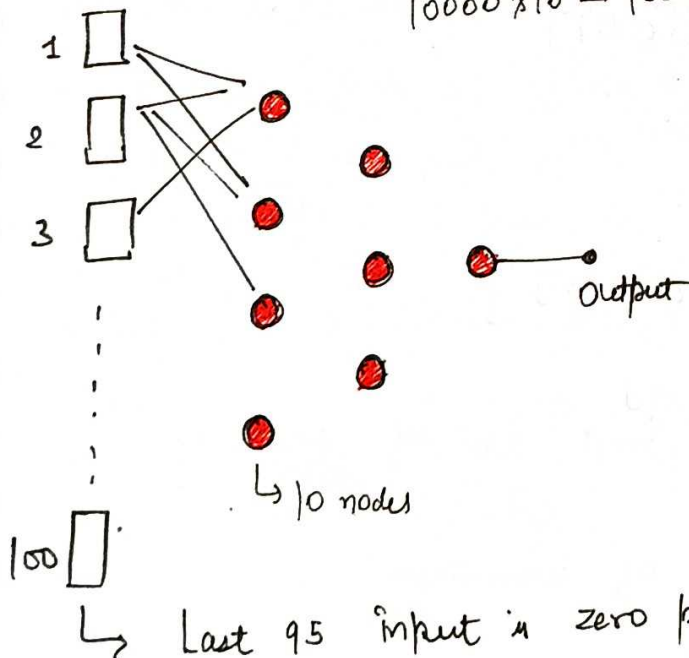 10000 x 10 =
1
2
3
Output
↳ 10 nodes
100
↳ Last 95 input is zero